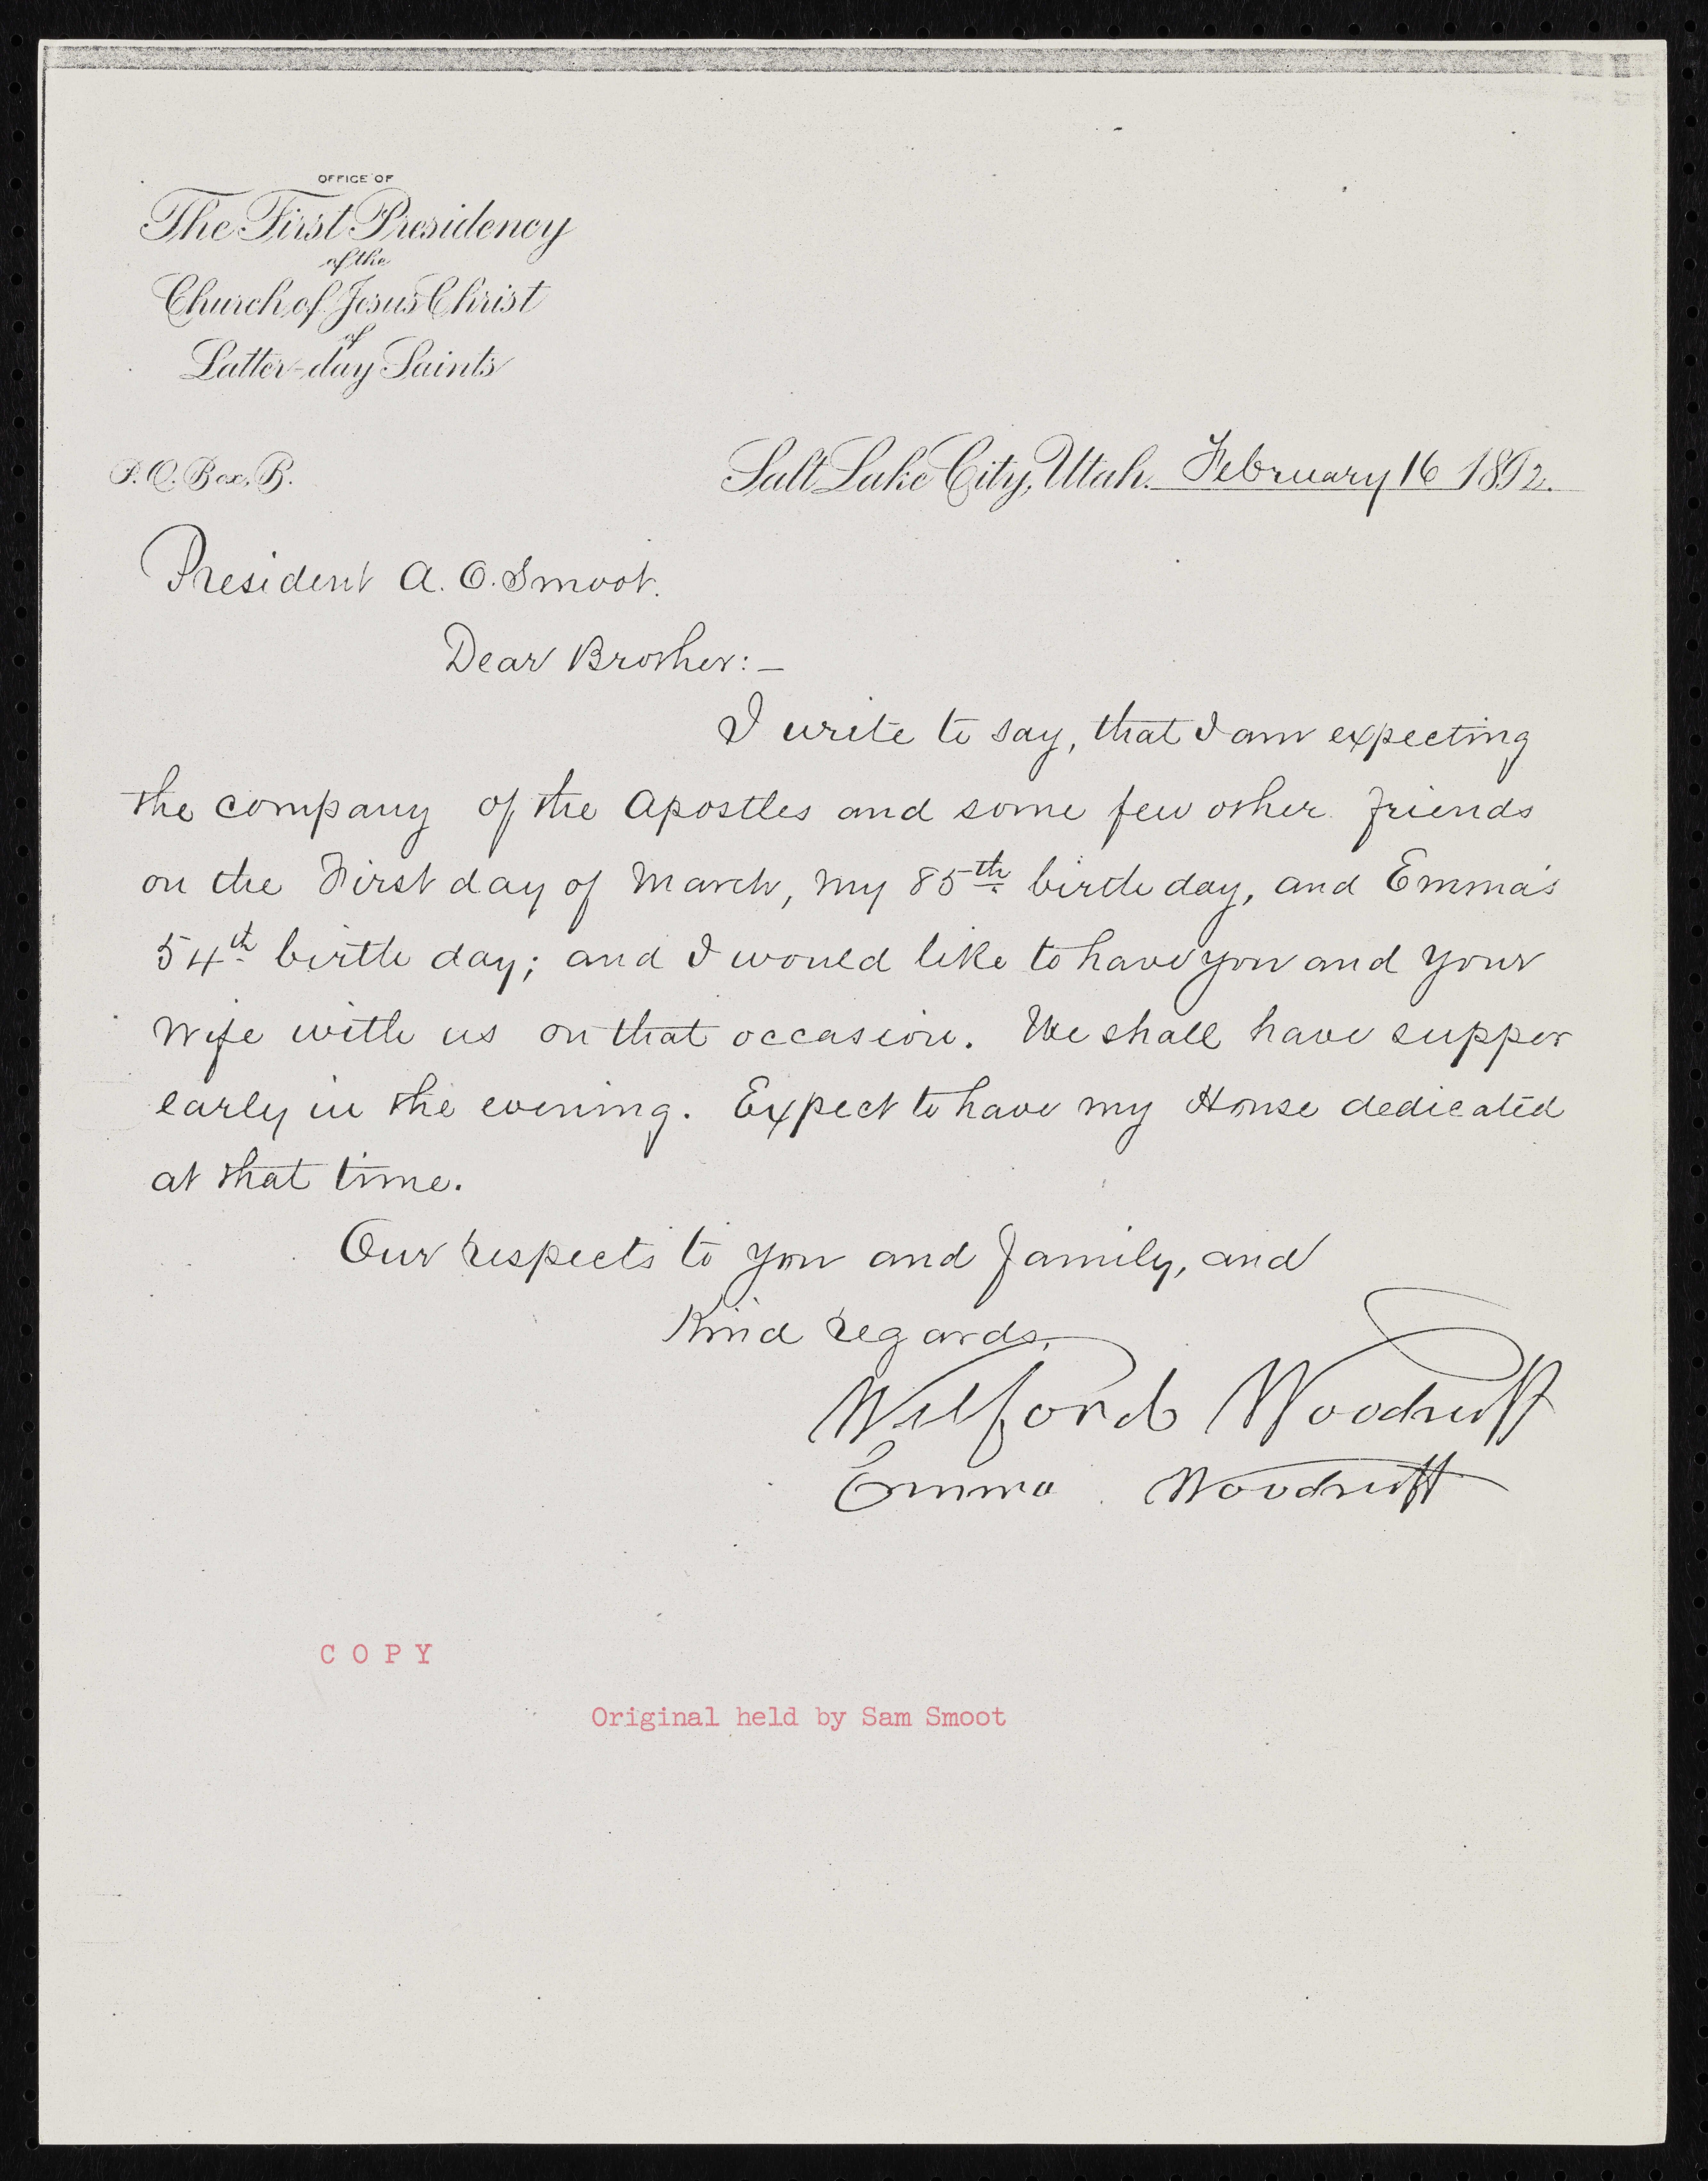 OFFICE OF
The First Presidency
of the
Church of Jesus Christ
of
Latter-day Saints
P. O. Box, B.
Salt Lake City, Utah. February 16 1892.
President A. O. Smoot.
Dear Brother:—
I write to say, that I am expecting
the company of the Apostles and some few other friends
on the First day of March, my 85th birth day, and Emma's
54th birth day; and I would like to have you and your
wife with us on that occasion. We shall have supper
early in the evening. Expect to have my House dedicated
at that time.
Our respects to you and family, and
Kind regards,
Wilford Woodruff
Emma Woodruff
COPY
Original held by Sam Smoot